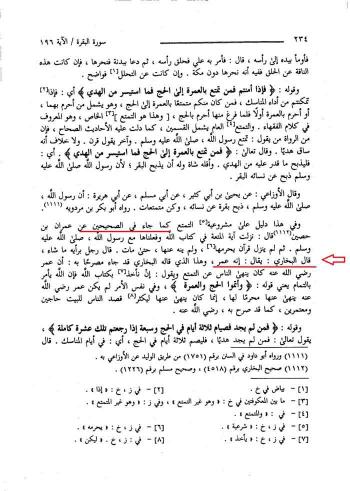 ٢٣٤ سورة البقرة / الآية ١٩٦
فأومأ بيده إلى رأسه ، فأمر به علي فحلق رأسه ، ثم دعا ببدنة فنحرها ، فإن كانت هذه
الناقة عن الحلق ففيه أنه نحرها دون مكة . وإن كانت عن التحلل فواضح .
وقوله : ﴿ فإذا أمنتم فمن تمتع بالعمرة إلى الحج فما استيسر من الهدي ﴾ أي : فإذا
تمكنتم من أداء المناسك ، فمن كان منكم متمتعًا بالعمرة إلى الحج ، وهو يشمل من أحرم بهما ،
أو أحرم بالعمرة أولًا فلما فرغ منها أحرم بالحج ، وهذا هو التمتع الخاص ، وهو المعروف
في كلام الفقهاء . والتمتع العام يشمل القسمين ، كما دلت عليه الأحاديث الصحاح ، فإن
من الرواة من يقول : تمتع رسول الله ، صلى الله عليه وسلم . وآخر يقول قرن . ولا خلاف أنه
ساق هديًا . وقال تعالى : ﴿ فمن تمتع بالعمرة إلى الحج فما استيسر من الهدي ﴾ ، أي :
فليذبح ما قدر عليه من الهدي . وأقله شاة وله أن يذبح البقر ؛ لأن رسول الله ، صلى الله عليه
وسلم ذبح عن نسائه البقر .
وقال الأوزاعي : عن يحيى بن أبي كثير ، عن أبي سلمة ، عن أبي هريرة : أن رسول الله ،
صلى الله عليه وسلم ، ذبح بقرة عن نسائه ، وكن متمتعات . رواه أبو بكر بن مردويه (١١١١)
وفي هذا دليل على مشروعية [٥] التمتع كما جاء في الصحيحين عن عمران بن
حصين (١١١٢) قال : نزلت آية المتعة في كتاب الله وفعلناها مع رسول الله ، صلى الله عليه
وسلم . ثم لم ينزل قرآن يحرمه [٦] ، ولم ينه عنها ، حتى مات . قال رجل برأيه ما شاء ،
قال البخاري : يقال : إنه عمر . وهذا الذي قاله البخاري قد جاء مصرحًا به : أن عمر
رضي الله عنه كان ينهى الناس عن التمتع ويقول : إنْ نأخذ [٧] بكتاب الله فإن الله يأمر
بالتمام يعني قوله : ﴿ وأتموا الحج والعمرة ﴾ ، وفي نفس الأمر لم يكن عمر رضي الله
عنه ينهى عنها محرمًا لها ، إنما كان ينهى عنها ليكثر [٨] قصد الناس للبيت حاجين
ومعتمرين ، كما قد صرح به رضي الله عنه .
وقوله : ﴿ فمن لم يجد فصيام ثلاثة أيام في الحج وسبعة إذا رجعتم تلك عشرة كاملة ﴾ ،
يقول تعالى : فمن لم يجد هديًا ، فليصم ثلاثة أيام في الحج ، أي : في أيام المناسك . قال
(١١١١) ورواه أبو داود في السنن برقم (١٧٥١) من طريق الوليد عن الأوزاعي به .
(١١١٢) صحيح البخاري برقم (٤٥١٨) ، وصحيح مسلم برقم (١٢٢٦) .
[١] - بياض في خ . [٢] - في ز ، خ : « إذا » .
[٣] - ما بين المعكوفتين في خ : « وهو غير التمتع » ، وفي ز : « وهو غير المتمتع » .
[٤] - في : « والمتمتع » .
[٥] - في ز ، خ : « شرعية » . [٦] - في ز ، خ : « يحرمه » .
[٧] - في ز ، خ : « يأخذ » . [٨] - في ز ، خ : « ليكن » .